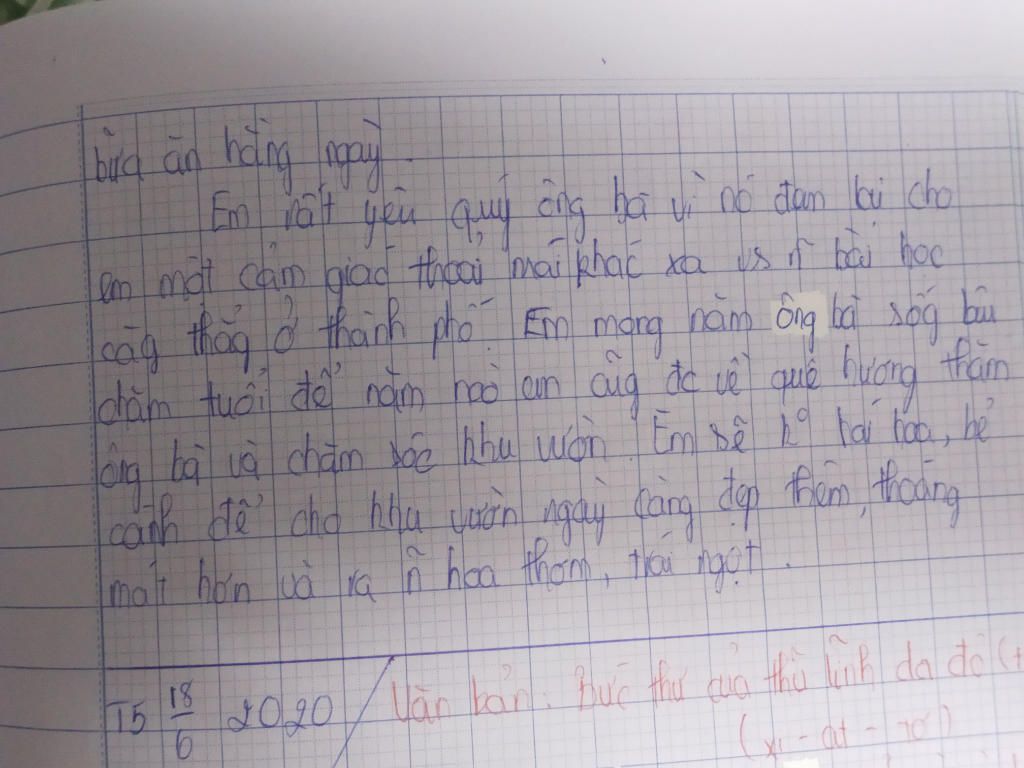 bữa ăn hằng ngày.
Em rất yêu quý ông bà vì nó đem lại cho
em một cảm giác thoải mái khác xa vs ñ bài học
căg thẳg ở thành phố. Em mong năm ông bà sốg lâu
chăm tuổi để năm nào em cũg đc về quê hương thăm
ông bà và chăm sóc khu vườn. Em sẽ k° hái hoa, bẻ
cành để cho khu vườn ngày càng đẹp thêm, thoáng
mát hơn và ra ñ hoa thơm, trái ngọt.
T5 18/6 2020 Văn bản: Bức thư của thủ lĩnh da đỏ (t
(xi - at - tơ)